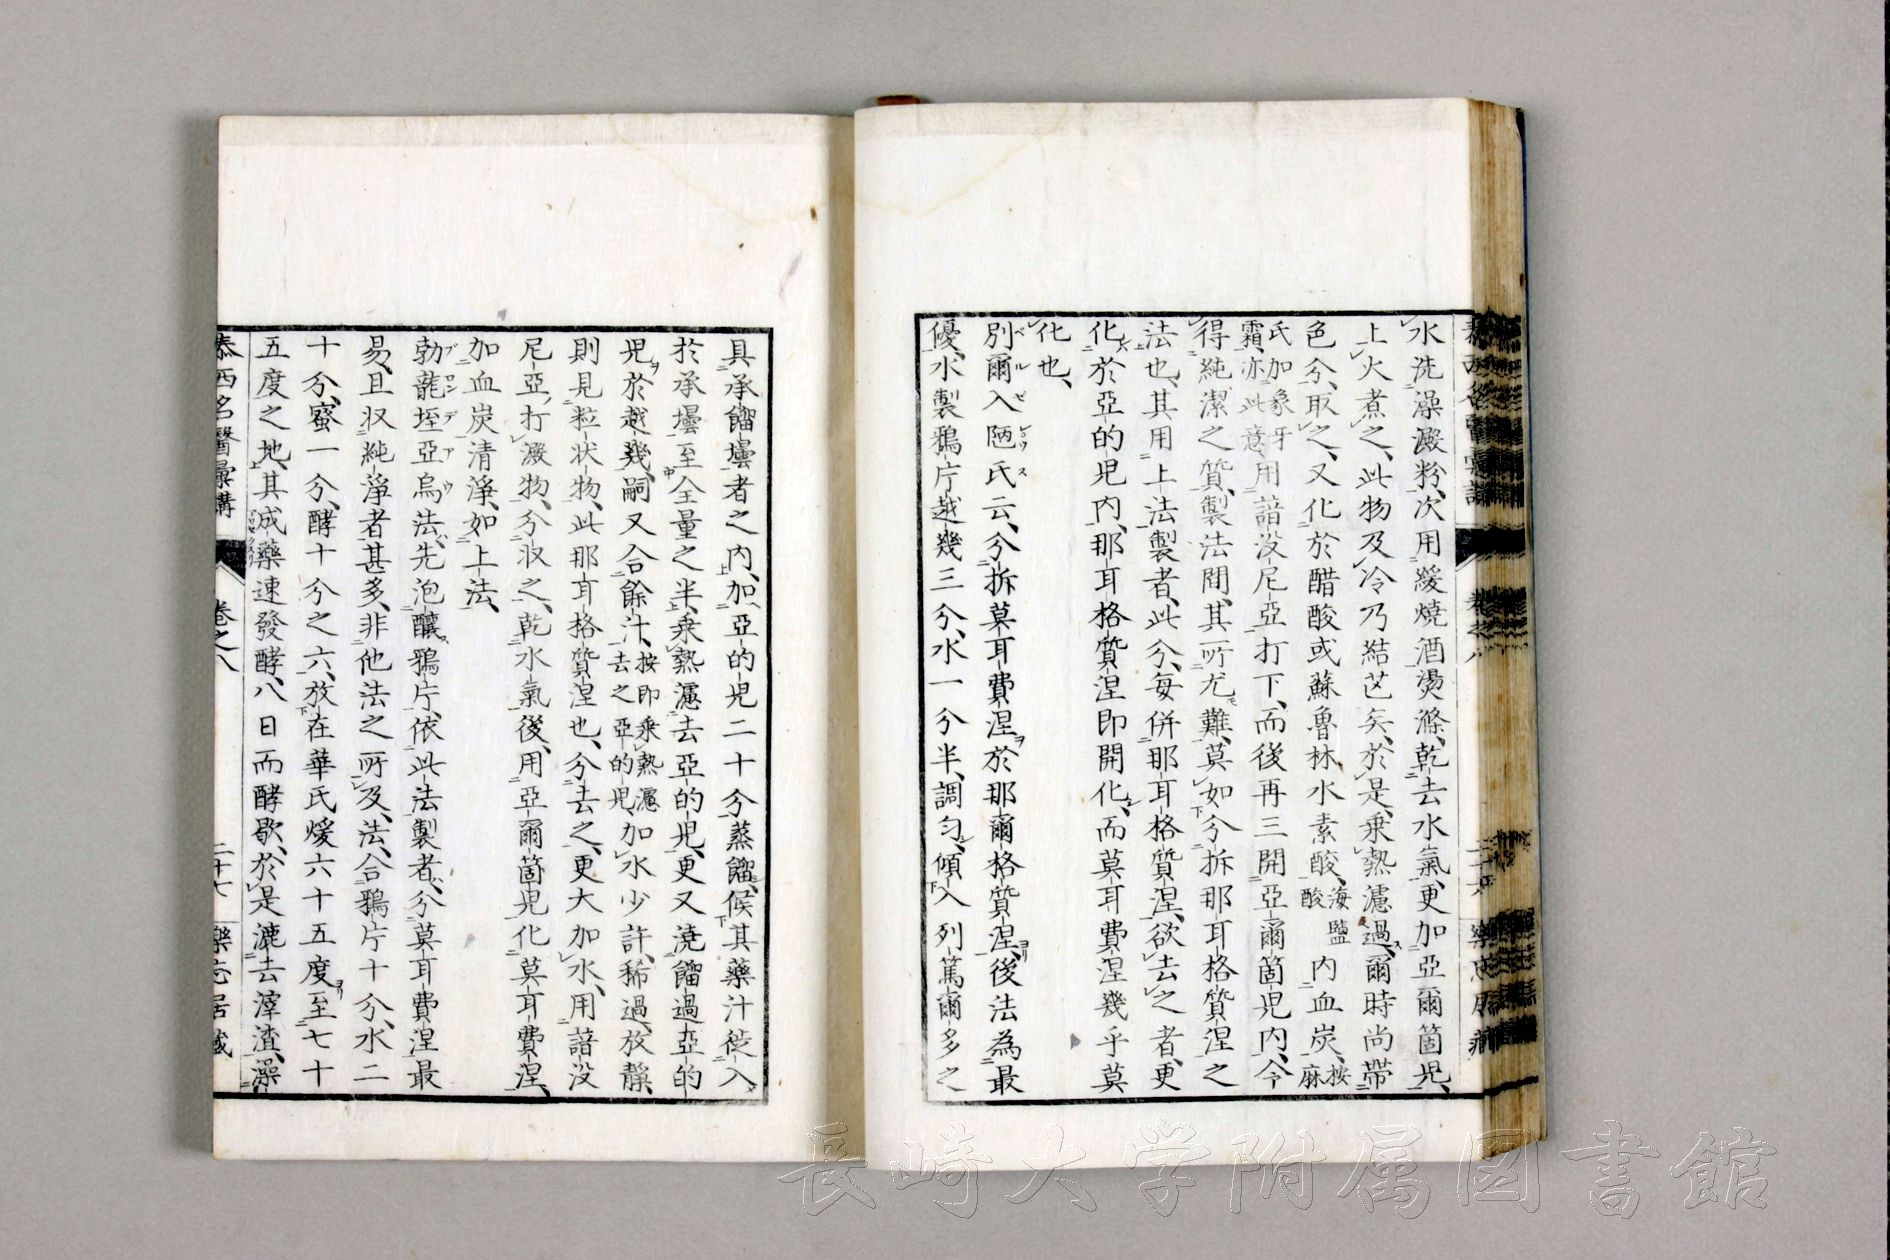 水洗澡澱粉、次用緩燒酒燙滌、乾去水氣、更加亞爾箇兒、
上火煮之、此物及冷乃結芒矣、於是、乗熱濾過、爾時尚帯
色分、取之、又化於醋酸或蘇魯林水素酸、海鹽酸內血炭、按麻
氏加象牙霜、亦此意、用諳没尼亞打下、而後再三開亞爾箇兒内、今
得純潔之質、製法間、其所尤難、莫如分拆那耳格質涅之
法也、其用上法製者、此分、毎併那耳格質涅、欲去之者、更
化於亞的兒内、那耳格質涅即開化、而莫耳費涅幾乎莫
化也、
別爾入陋氏云、分拆莫耳費涅於那爾格質涅、後法為最
優、水製鴉片越幾三分、水一分半、調勻、傾入列篤爾多之
具承餾壜者之内、加亞的兒二十分蒸餾、候其藥汁徙入
於承壜至全量之半、乗熱濾去亞的兒、更又澆餾過亞的
兒於越幾、嗣又合餘汁、按即乗熱濾去之亞的兒、加水少許、稀過、放靜、
則見粒状物、此那耳格質涅也、分去之、更大加水、用諳没
尼亞、打澱物、分収之、乾水氣後、用亞爾箇兒化莫耳費涅、
加血炭清淨、如上法、
勃龍垤亞烏法、先泡釀鴉片、依此法製者、分莫耳費涅最
易、且収純淨者甚多、非他法之所及、法、合鴉片十分、水二
十分、蜜一分、酵十分之六、放在華氏煖六十五度至七十
五度之地、其成藥速發酵、八日而酵歇、於是漉去滓渣、澡
泰西名醫彙講 卷之八 二十七
長崎大学附属図書館